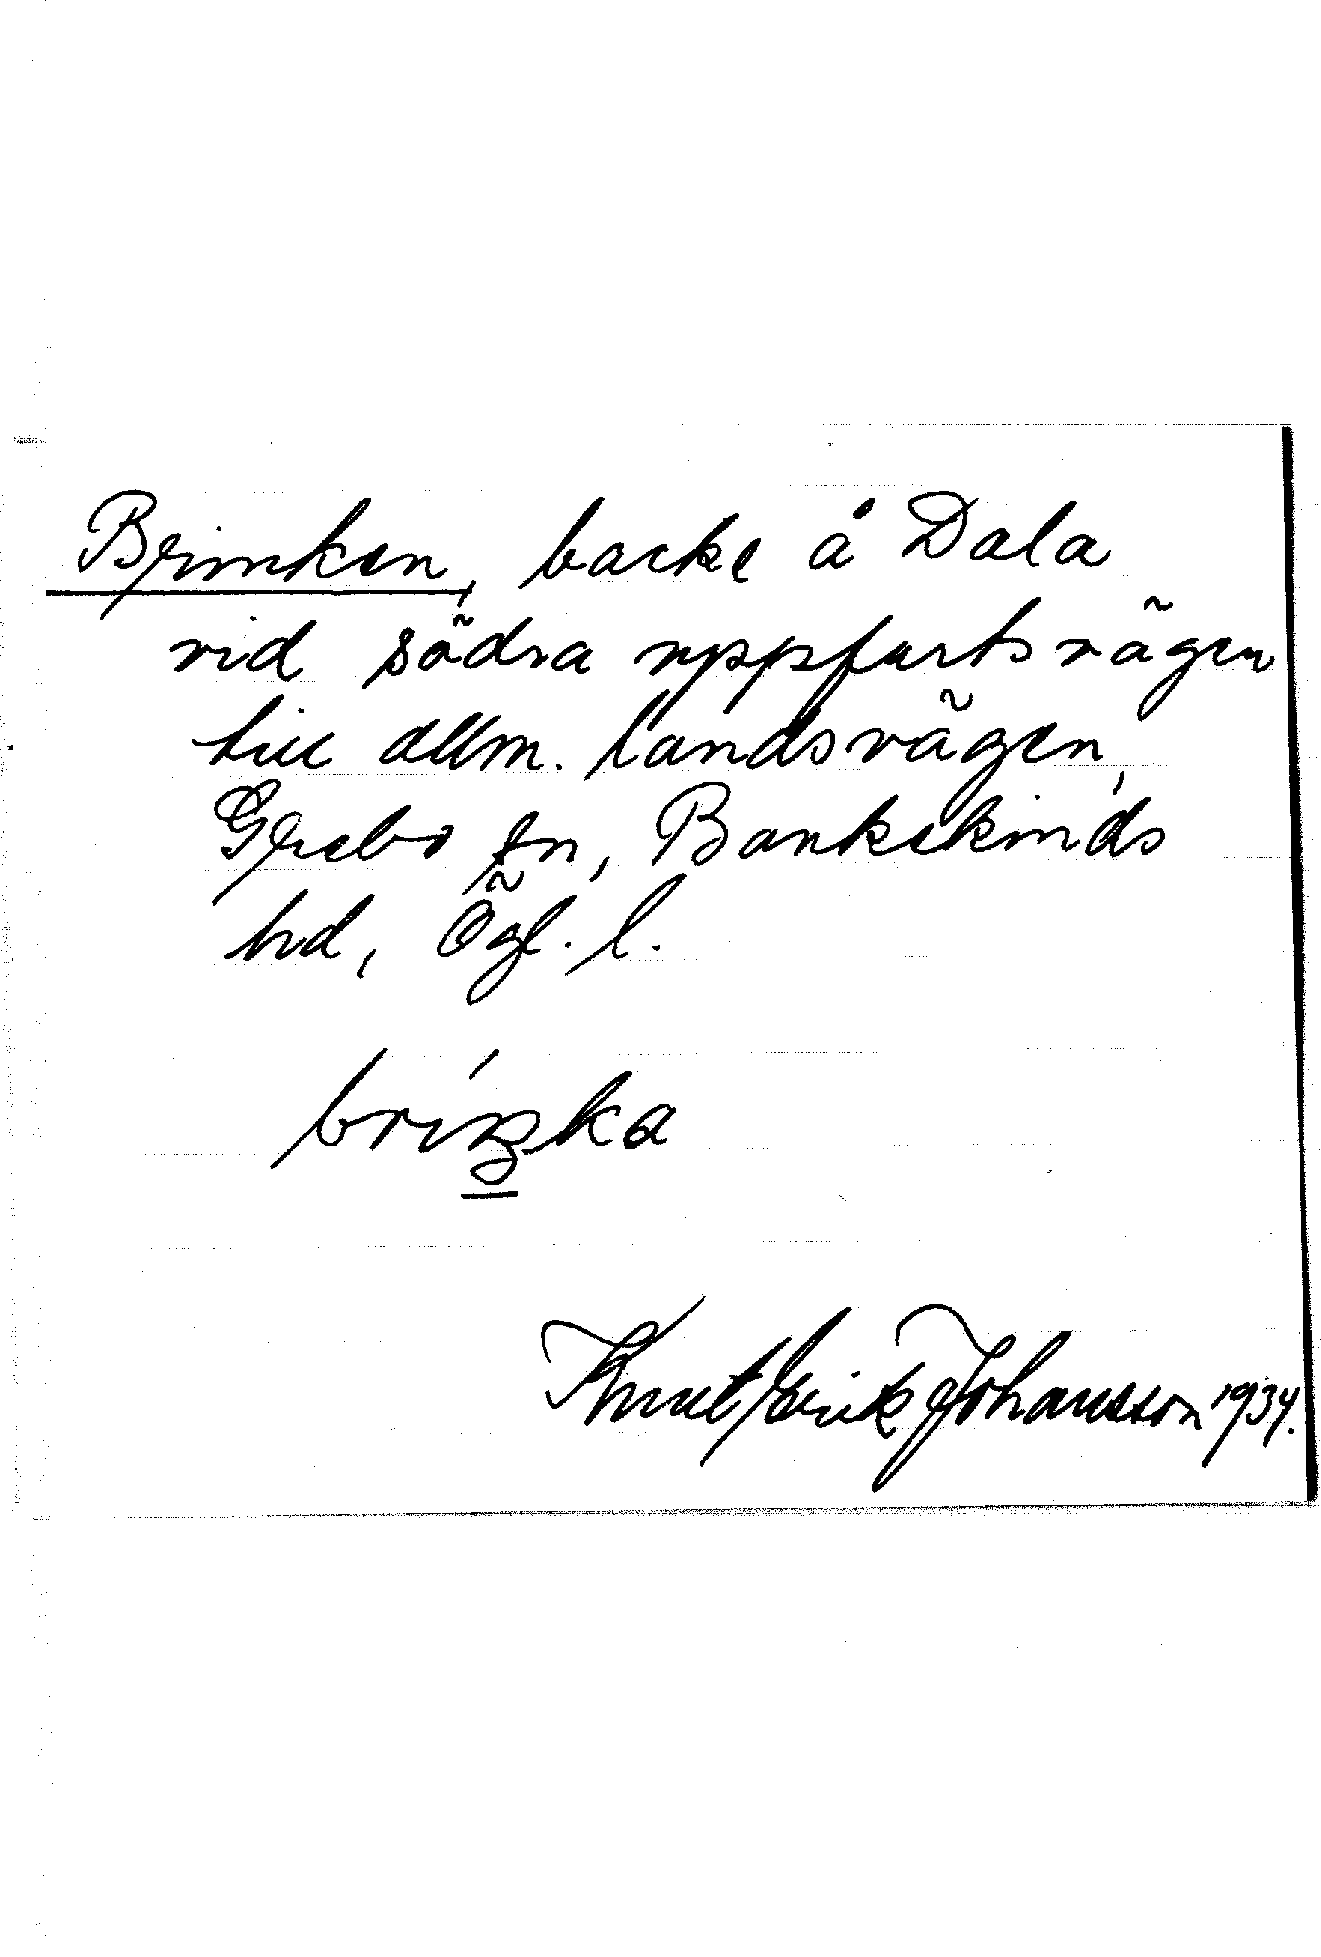 Brinken, backe å Dala
vid södra uppfartsvägen
till allm. landsvägen,
Grebo sn, Bankekinds
hd, Ögl. l.
bríŋka
Knut Erik Johansson 1934.